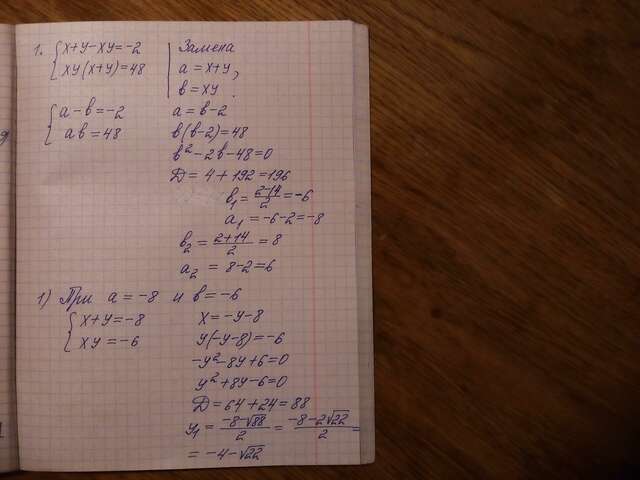 1. { x+y-xy=-2 | Замена
{ xy(x+y)=48 | a=x+y,
b=xy.
{ a-b=-2 a=b-2
{ ab=48 b(b-2)=48
b²-2b-48=0
D=4+192=196
b₁=(2-14)/2=-6
a₁=-6-2=-8
b₂=(2+14)/2=8
a₂=8-2=6
1) При a=-8 и b=-6
{ x+y=-8 x=-y-8
{ xy=-6 y(-y-8)=-6
-y²-8y+6=0
y²+8y-6=0
D=64+24=88
y₁=(-8-√88)/2=(-8-2√22)/2=
=-4-√22